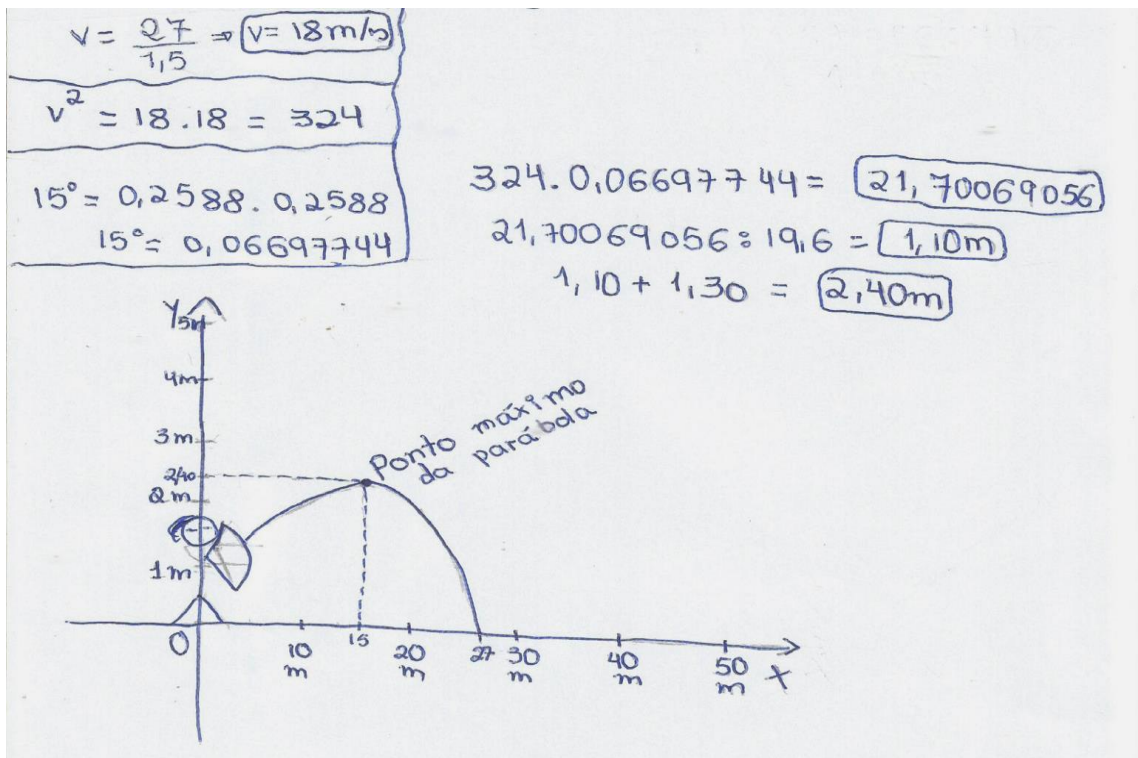 V = 27/1,5 ⇒ V = 18m/s
v² = 18.18 = 324
15° = 0,2588 . 0,2588
15° = 0,06697744
324. 0,06697744 = 21,70069056
21,70069056 : 19,6 = 1,10m
1,10 + 1,30 = 2,40m
Y
5m
4m
3m
2,40
2m
1m
Ponto máximo
da parábola
0
10 m
15
20 m
27
30 m
40 m
50 m
X